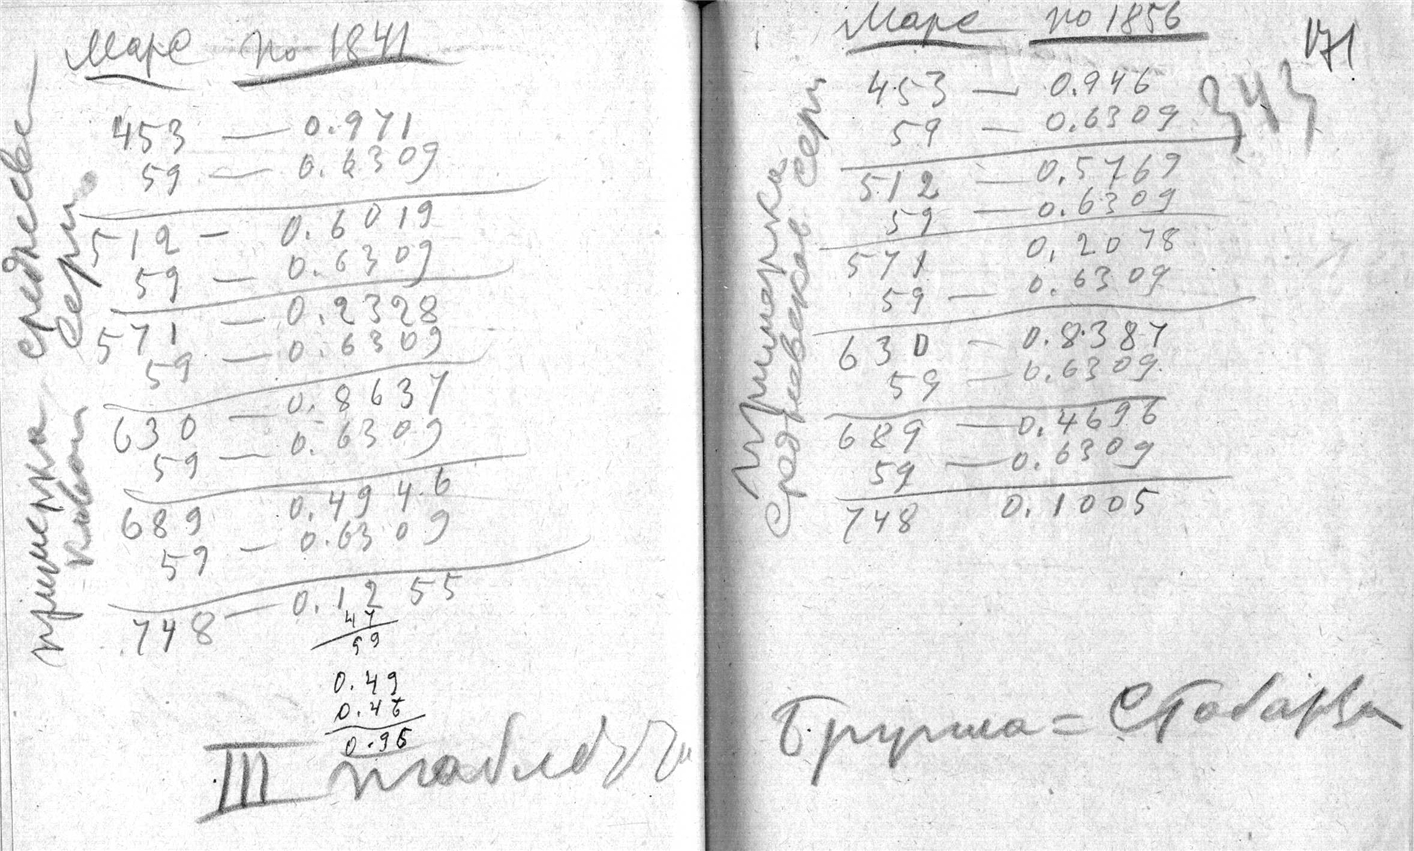 Марс по 1841
453 — 0.971
59 — 0.6309
512 — 0.6019
59 — 0.6309
571 — 0.2328
59 — 0.6309
630 — 0.8637
59 — 0.6309
689 0.4946
59 — 0.6309
748 — 0.1255
47
59
0.49
0.46
0.95
III
примерка
Марс по 1856
171
343
453 — 0.946
59 — 0.6309
512 — 0.5769
59 — 0.6309
571 0.2078
59 — 0.6309
630 — 0.8387
59 — 0.6309
689 — 0.4696
59 — 0.6309
748 0.1005
Примерка